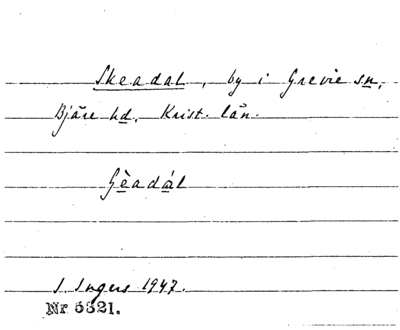 Skeadal, by i Grevie sn,
Bjäre hd. Krist. län.
Gèadál
I. Ingers 1947.
Nr 5321.